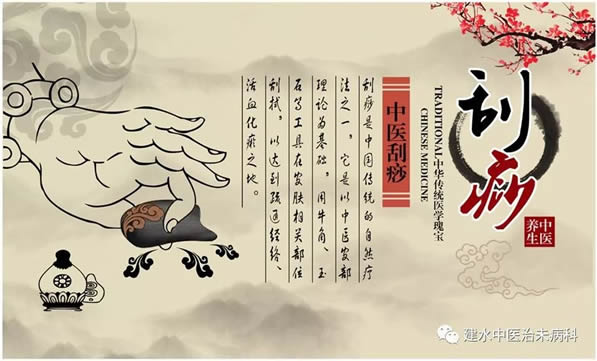 刮痧
中医
养生
TRADITIONAL 中华传统医学瑰宝
CHINESE MEDICINE
中医刮痧
刮痧是中国传统的自然疗
法之一，它是以中医皮部
理论为基础，用牛角、玉
石等工具在皮肤相关部位
刮拭，以达到疏通经络、
活血化瘀之地。
建水中医治未病科